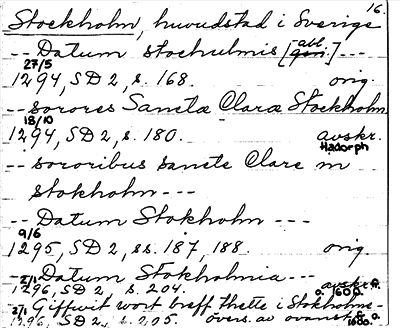 16.
Stockholm, huvudstad i Sverige
-- Datum stochulmis [abl. gen.] ---
27/5
1294, SD 2, s. 168. orig.
-- sorores Sancta Clara Stockholm
18/10
1294, SD 2, s. 180. avskr.
Hadorph
-- sororibus sancte Clare in
stokholm ---
-- Datum Stokholm ---
9/6
1295, SD 2, ss. 187, 188. orig.
-- Datum Stokholmia ---
2/1
1296, SD 2, s. 204. avskr.
o. 1600
-- Giffwit wort breff thette i Stokholme-
2/1
1296, SD 2, s. 205. övers. av ovanst.
1600